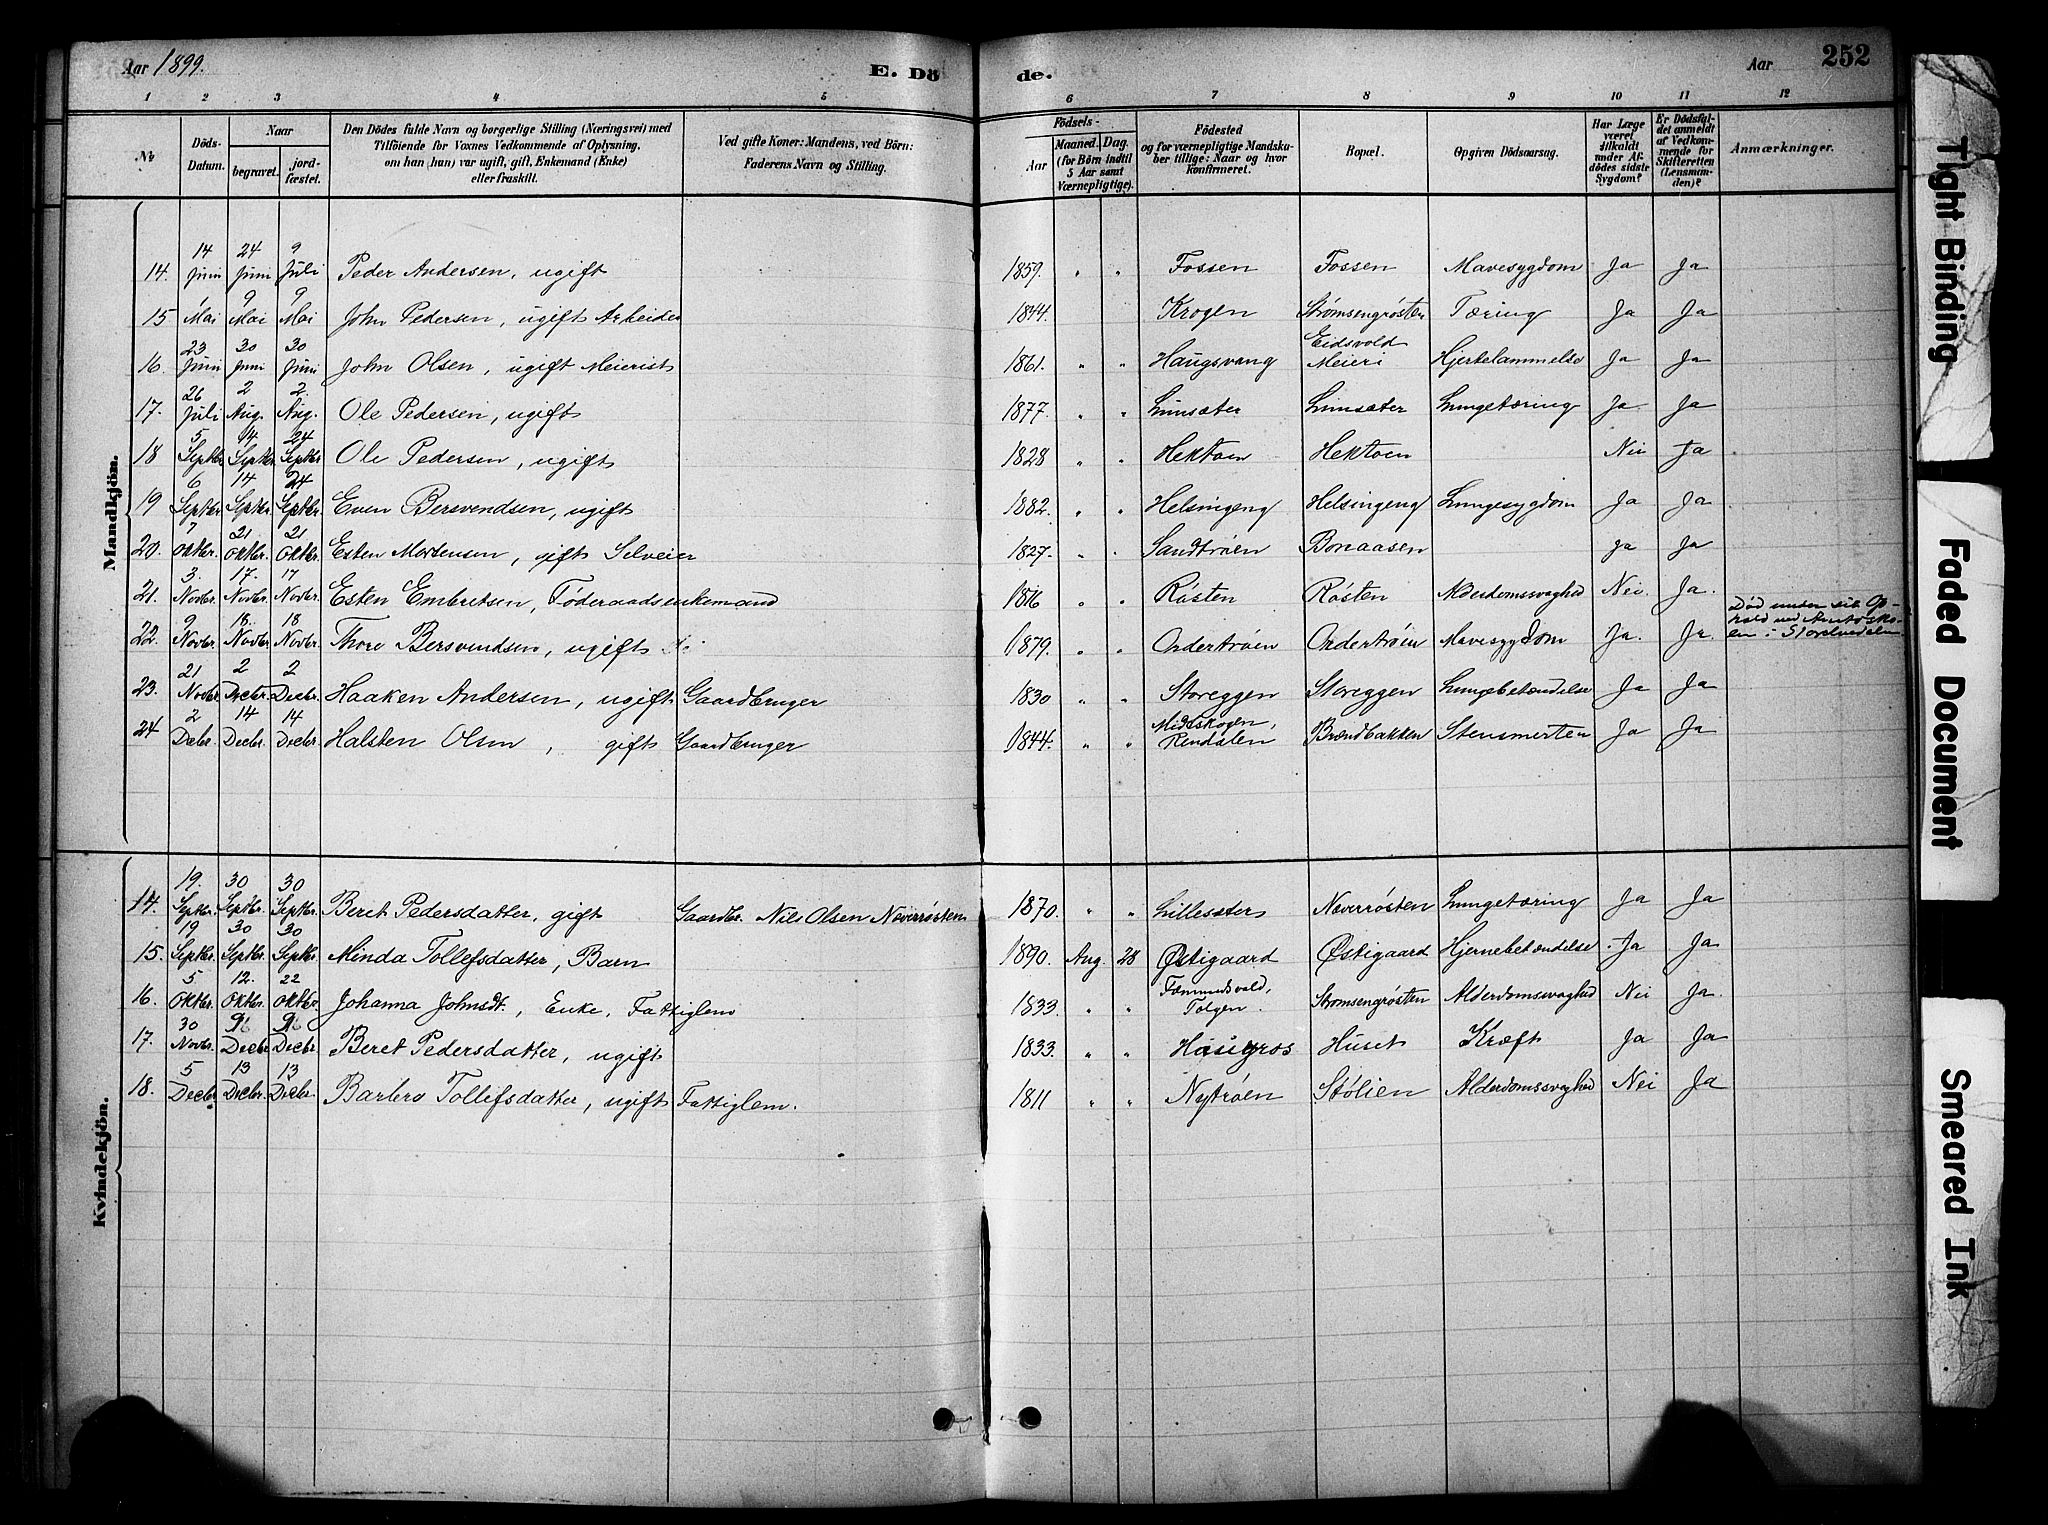 Aar 1899. E. Dö de. Aar 252
1 2 3 4 5 6 7 8 9 10 11 12
№ Döds-Datum. Naar begravet. jordfæstet. Den Dödes fulde Navn og borgerlige Stilling (Næringsvei) med Tilföiende for Voxnes Vedkommende af Oplysning, om han (hun) var ugift, gift, Enkemand (Enke) eller fraskilt. Ved gifte Koner: Mandens, ved Börn: Faderens Navn og Stilling. Födsels- Aar Maaned. Dag. (for Börn indtil 5 Aar samt Værnepligtige). Födested og for værnepligtige Mandskaber tillige: Naar og hvor konfirmeret. Bopæl. Opgiven Dödsaarsag. Har Læge været tilkaldt under Afdödes sidste Sygdom? Er Dödsfaldet anmeldt af Vedkommende for Skifteretten (Lensmanden)? Anmærkninger.
Mandkjön.
14. 14 Juni 24 Juni 9 Juli Peder Andersen, ugift 1859. " " Fossen Fossen Mavesygdom Ja Ja
15 1 Mai 9 Mai 9 Mai John Pedersen, ugift Arbeider 1844. Krogen Strømsengrøsten Tæring Ja Ja
16. 23 Juni 30 Juni 30 Juni John Olsen, ugift Meierist 1861. " " Haugsvang Eidsvold Meieri Hjertelammelse Ja Ja
17. 26 Juli 2 Aug. 2. Aug. Ole Pedersen, ugift 1877. " " Limsæter Limsæter Lungetæring Ja Ja
18 5 Septbr 14 Septbr 24 Septbr Ole Pedersen, ugift 1828 " " Hektoen Hektoen Nei Ja
19 6 Septbr 14 Septbr. 24 Septbr Even Bersvendsen, ugift 1882. " " Helsingeng Helsingeng Lungesygdom Ja Ja
20. 7 Oktbr. 21 Oktbr. 21 Oktbr. Esten Mortensen, gift Selveier 1827. " " Sandtrøen Bonaasen Ja Ja
21. 3. Novbr. 17. Novbr. 17 Novbr. Esten Embretsen, Føderaadsenkemand 1816 " " Røsten Røsten Alderdomssvaghed Nei Ja.
22. 9 Novbr. 18. Novbr. 18 Novbr. Thore Bersvendsen, ugift 1879. " " Ordertrøen Ordertrøen Mavesygdom Ja. Ja. Død under sit Ophold ved Amtsskolen i Storelvedalen
23. 21 Novbr 2 Decbr. 2 Decbr. Haaken Andersen, ugift Gaardbruger 1830 " " Storeggen Storeggen Lungebetændelse Ja Ja
24 2 Decbr. 14 Decbr. 14 Decbr. Halsten Olsen, gift Gaardbruger 1844. " " Midtskogen, Rendalen Brændbakken Stensmerten Ja Ja
Kvindekjön.
14. 19. Septbr. 30 Septbr. 30 Septbr. Beret Pedersdatter, gift Gaardbr. Nils Olsen Neverrøsten 1870. " " Lillesæter Neverrøsten Lungetæring Ja Ja
15. 19 Septbr. 30 Septbr. 30 Septbr. Minda Tollefsdatter, Barn 1890. Aug. 28 Østigaard Østigaard Hjernebetændelse Ja Ja
16. 5 Oktbr. 12. Oktbr. 22 Oktbr. Johanna Johnsdt., Enke, Fattiglem 1833. " " Fæmundsvold, Tolgen. Strømsengrøsten Alderdomssvaghed Nei Ja.
17. 30 Novbr. Decbr Decbr. Beret Pedersdatter, ugift 1833. " " Husigros Huset Kræft Ja Ja
18. 5 Decbr. 13 Decbr. 13 Decbr. Barbro Tollefsdatter, ugift Fattiglem. 1811 " " Nytrøen Stølien Alderdomssvaghed Nei Ja
Tight Binding
Faded Document
Smeared Ink